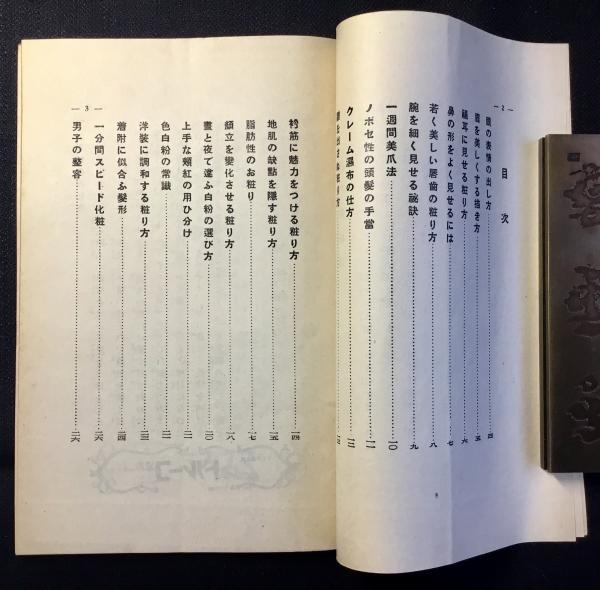 — 2 —
目次
眼の表情の出し方 四
眉を美しくする描き方 五
福耳に見せる粧り方 六
鼻の形をよく見せるには 七
若く美しい唇歯の粧り方 八
腕を細く見せる祕訣 九
一週間美爪法 一〇
ノボセ性の頭髮の手當 一一
クレーム瀑布の仕方 一二
— 3 —
襟筋に魅力をつける粧り方 一四
地肌の缺點を隱す粧り方 一五
脂肪性のお粧り 一七
顏立を變化させる粧り方 一八
晝と夜で違ふ白粉の選び方 二〇
上手な頬紅の用ひ分け 二一
色白粉の常識 二二
洋裝に調和する粧り方 二三
着附に似合ふ髮形 二四
一分間スピード化粧 二六
男子の整容 二六